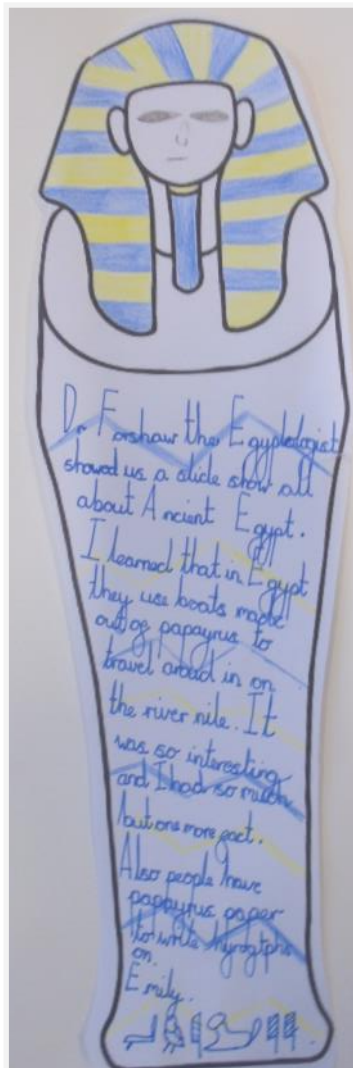 Dr Forshaw the Egyptologist
showed us a slide show all
about Ancient Egypt.
I learned that in Egypt
they use boats made
out of papayrus to
travel aroud in on
the river nile. It
was so interesting
and I had so much
but one more fact.
Also people have
papayrus paper
to write hyroglphs
on.
Emily.